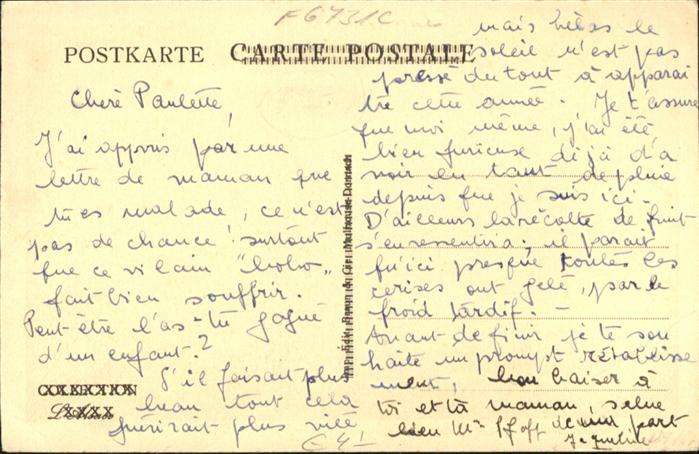 F6731C
POSTKARTE CARTE POSTALE
Chère Paulette,
J'ai appris par une
lettre de maman que
tu es malade, ce n'est
pas de chance ! surtout
que ce vilain "bobo"
fait bien souffrir.
Peut-être l'as-tu gagné
d'un enfant ?
S'il faisait plus
beau tout cela
guérirait plus vite
mais hélas le
soleil n'est pas
pressé du tout à apparai
tre cette année. Je t'assure
que moi même, j'ai été
bien furieuse déjà d'a
voir eu tant de pluie
depuis que je suis ici.
D'ailleurs la récolte de fruit
s'en ressentira ; il paraît
qu'ici presque toutes les
cerises ont gelé, par le
froid tardif. -
Avant de finir je te sou
haite un prompt rétablisse
ment, bon baiser à
toi et tà maman, salue
bien Mr de ma part
Jacqueline
COLLECTION